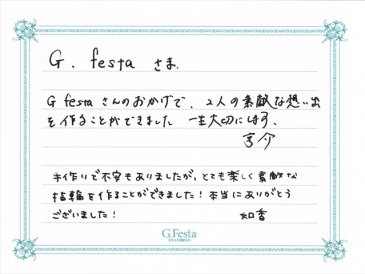 G. festa さま.
G festaさんのおかげで、2人の素敵な想い出
を作ることができました 一生大切にします.
手作りで不安もありましたが、とても楽しく素敵な
指輪を作ることができました！本当にありがとう
ございました！ 知香
G.Festa
DIAMOND